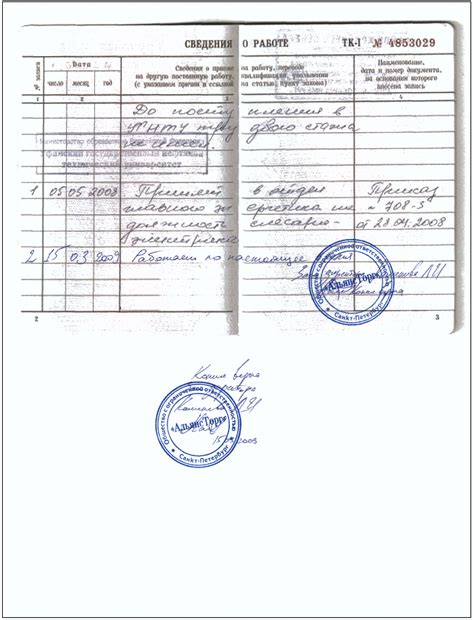 СВЕДЕНИЯ О РАБОТЕ ТК-I № 4853029
№ записи
Дата
число месяц год
Сведения о приеме на работу, переводе
на другую постоянную работу, квалификации, увольнении
(с указанием причин и ссылкой на статью, пункт закона)
Наименование,
дата и номер документа,
на основании которого
внесена запись
1 2 3 4
До поступления в
УГНТУ трудового стажа
не имеет.
Уфимский государственный нефтяной
технический университет
1 05 05 2008 Принят в отдел Приказ
главного энергетика на № 708-5
должность слесарю- от 28.04.2008
электрика
2 15 03 2009 Работает по настоящее
Общество с ограниченной ответственностью
«АльянсТорг»
Санкт-Петербург
2 3
Копия верна
Общество с ограниченной ответственностью
«АльянсТорг»
Санкт-Петербург